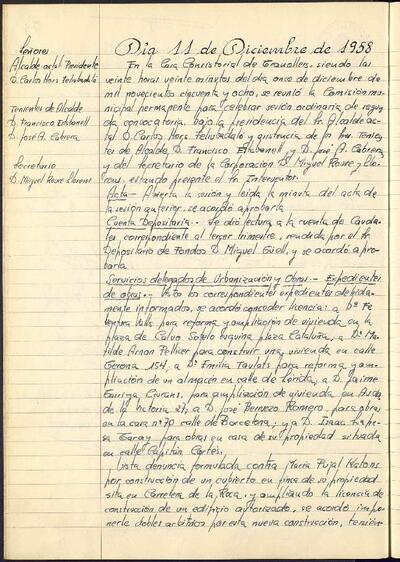 Señores
Alcalde actal. Presidente
D. Carlos Hors Feliubadaló
Tenientes de Alcalde
D. Francisco Estabanell
D. José A. Cabrera
Secretario
D. Miguel Roure Llorens
Día 11 de Diciembre de 1958
En la Casa Consistorial de Granollers, siendo las
veinte horas veinte minutos del día once de diciembre de
mil novecientos cincuenta y ocho, se reunió la Comisión mu-
nicipal permanente para celebrar sesión ordinaria de segun-
da convocatoria, bajo la presidencia del Sr. Alcalde ac-
tal D. Carlos Hors Feliubadaló y asistencia de los Sres. Tenien-
tes de Alcalde D. Francisco Estabanell y D. José A. Cabrera
y del Secretario de la Corporación D. Miguel Roure y Llo-
rens, estando presente el Sr. Interventor.
Acta.- Abierta la sesión y leída la minuta del acta de
la sesión anterior, se acordó aprobarla.
Cuenta Depositaría.- Se dió lectura a la cuenta de Cauda-
les correspondiente al tercer trimestre, rendida por el Sr.
Depositario de Fondos D. Miguel Guell, y se acordó apro-
barla.
Servicios delegados de Urbanización y Obras.- Expedientes
de obras.- Vistos los correspondientes expedientes debida-
mente informados, se acordó conceder licencia: a Dª
Ventura Valls para reforma y ampliación de vivienda en la
plaza de Calvo Sotelo esquina plaza Cataluña, a Dª Ma-
tilde Arnan Pellicer para construir una vivienda en calle
Gerona 154, a Dª Emilia Taulats para reforma y am-
pliación de un almacén en calle de Lérida, a D. Jaime
Garriga Civrans, para ampliación de vivienda en Avda.
de la Victoria 27, a D. José Rero Romero, para obras
en la casa nº 70 calle de Barcelona; y a D. Isaac
Garay para obras en casa de su propiedad situada
en calle Capitán Cortés.
Vista denuncia formulada contra María Pujal Matons
por construcción de un cubierto en finca de su propiedad
sita en Carretera de la Roca, y ampliando la licencia de
construcción de un edificio autorizado, se acordó impo-
nerle dobles arbitrios por esta nueva construcción,